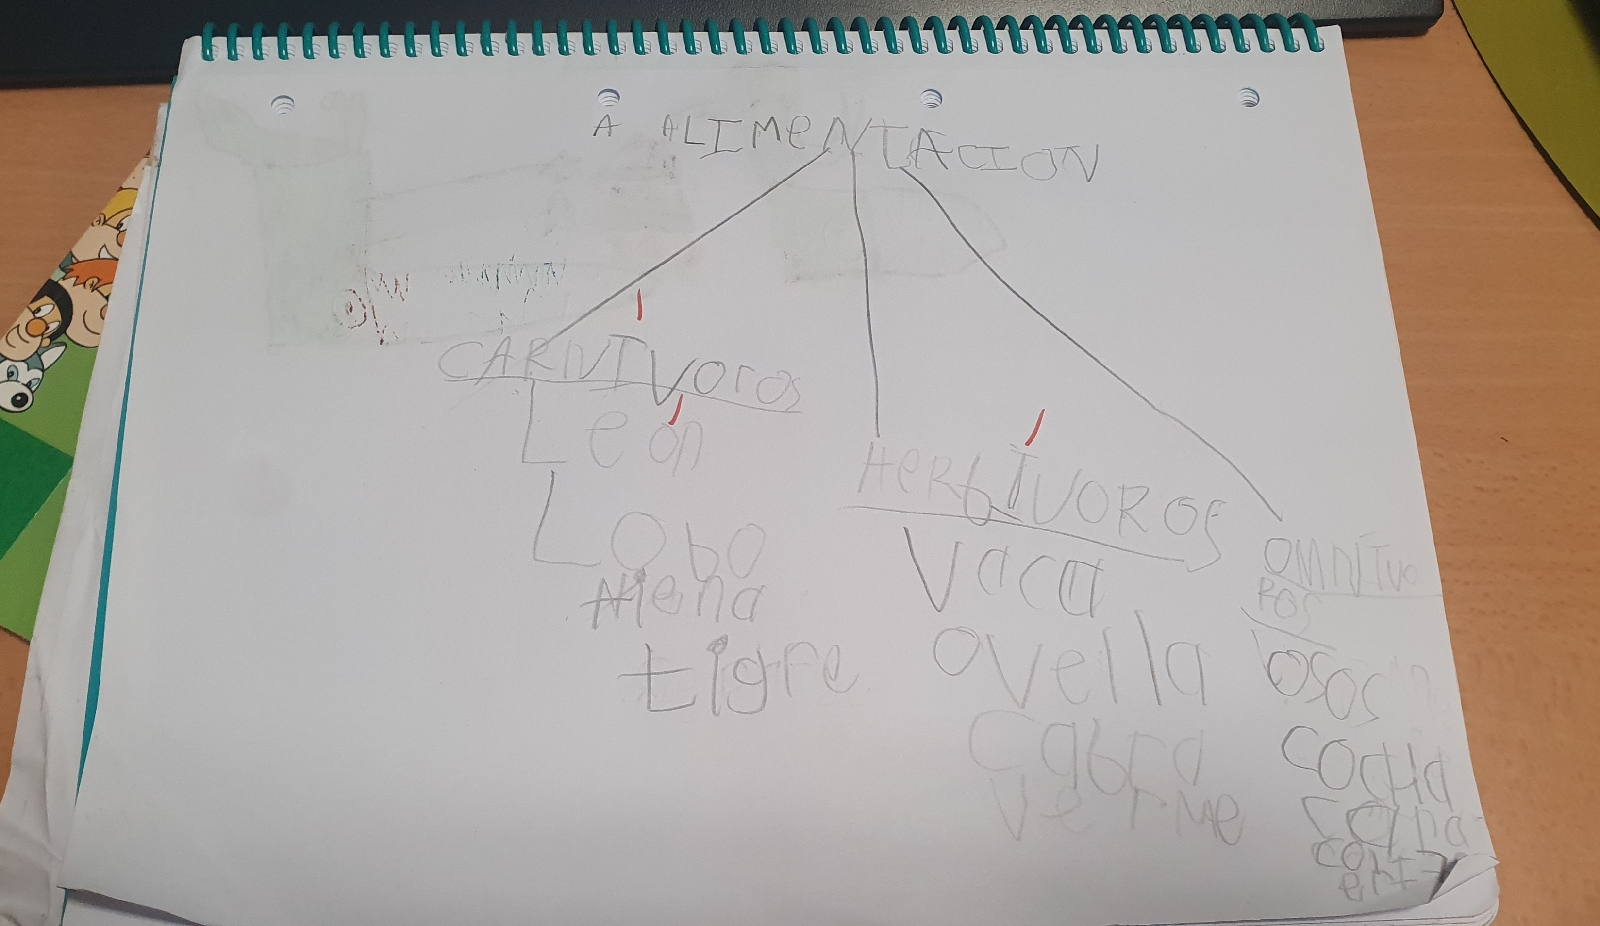 A ALIMeNTACION
CARNÍVOROS
León
Lobo
Hiena
tigre
HERbÍVOROS
Vaca
Ovella
Cabra
Verme
OMNIVO
ROS
OSOS